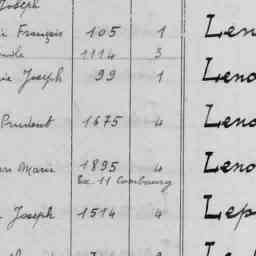 Joseph
François 105 1 Len
1114 3
Joseph 99 1 Leno
Prudent 1675 4 Leno
Marie 1895 4 Leno
Ex. 11 Combourg
Joseph 1514 4 Lep